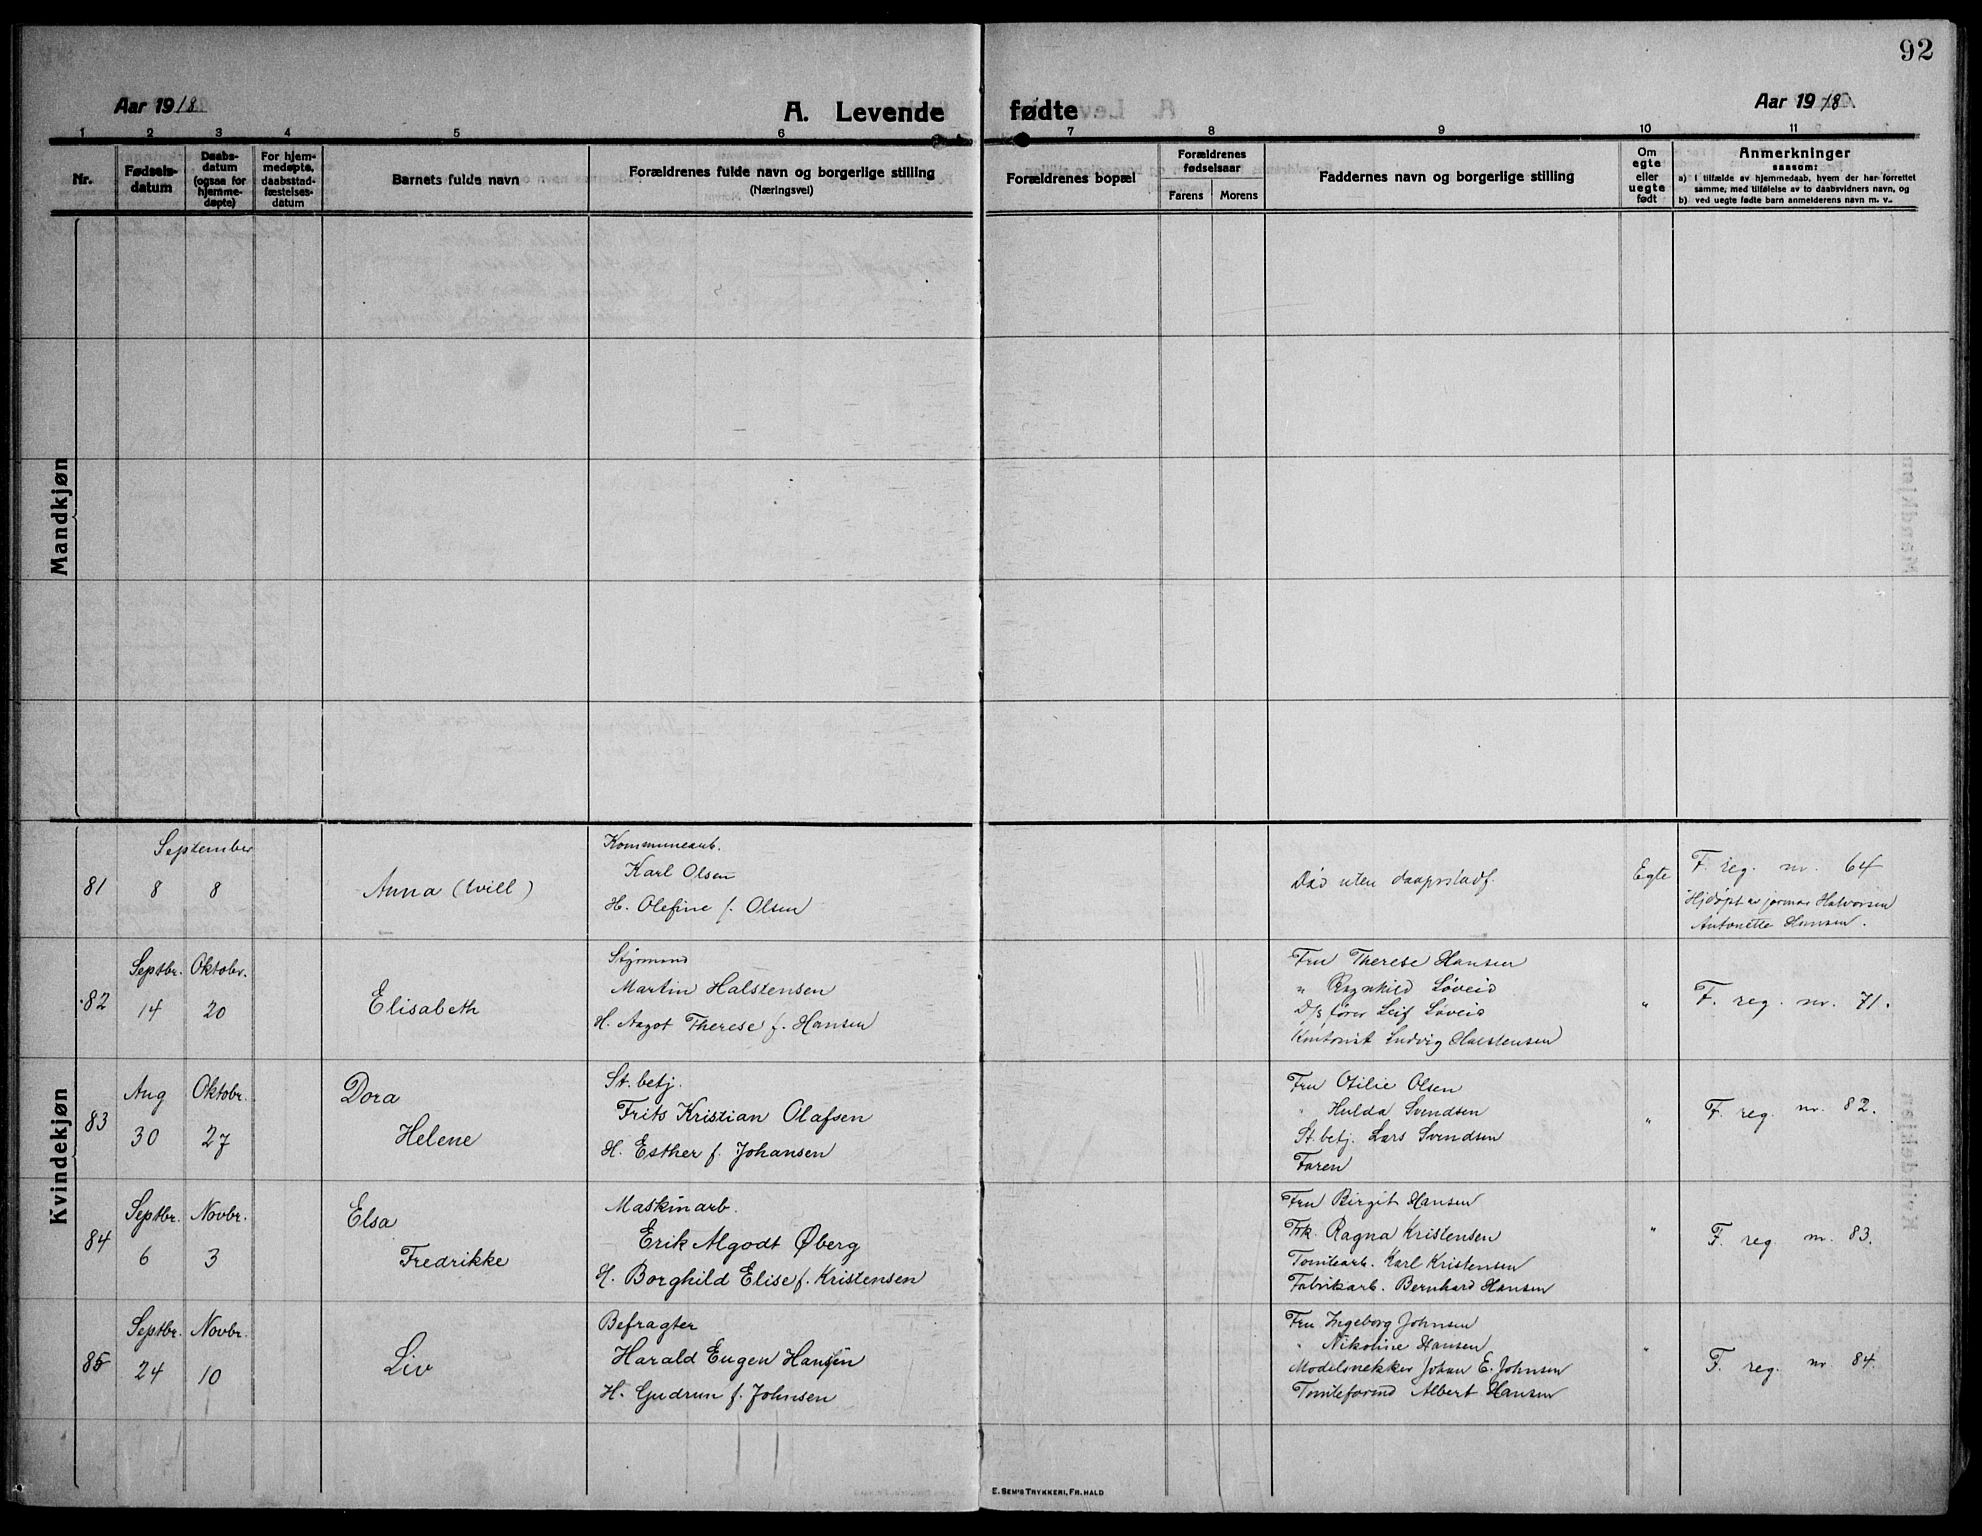 92
Aar 1918
A. Levende fødte
Aar 1918.
1 2 3 4 5 6 7 8 9 10 11
Nr.
Fødsels-
datum
Daabs-
datum
(ogsaa for
hjemme-
døpte)
For hjem-
medøpte,
daabsstad-
fæstelses-
datum
Barnets fulde navn
Forældrenes fulde navn og borgerlige stilling
(Næringsvei)
Forældrenes bopæl
Forældrenes
fødselsaar
Farens Morens
Faddernes navn og borgerlige stilling
Om
egte
eller
uegte
født
Anmerkninger
saasom:
a) i tilfælde av hjemmedaab, hvem der har forrettet
samme, med tilføielse av to daabsvidners navn, og
b) ved uegte fødte barn anmelderens navn m. v.
Mandkjøn
Kvindekjøn
81
September
8 8
Anna (tvill)
Kommunearb.
Karl Olsen
H. Olefine f. Olsen
Død uten daapsstadf.
Egte
F. reg. nr. 64
Hjdøpt av jormor Halvorsen
Antonette Hansen.
82
Septbr. Oktobr.
14 20
Elisabeth
Styrmand
Martin Halstensen
H. Aagot Therese f. Hansen
Fru Therese Hansen
" Ragnhild Løveid
D/s fører Leif Løveid
Kontorist Ludvig Halstensen
"
F. reg. nr. 71.
83
Aug Oktobr.
30 27
Dora
Helene
St. betj.
Frits Kristian Olafsen
H. Esther f. Johansen
Fru Otilie Olsen
" Hulda Svendsen
St. betj. Lars Svendsen
Faren
"
F. reg. nr. 82.
84
Septbr. Novbr.
6 3
Elsa
Fredrikke
Maskinarb.
Erik Algodt Øberg
H. Borghild Elise f. Kristensen
Fru Birgit Hansen
Frk. Ragna Kristensen
Tomtearb. Karl Kristensen
Fabrikarb. Bernhard Hansen
"
F. reg. nr. 83.
85
Septbr. Novbr.
24 10
Liv
Befragter
Harald Eugen Hansen
H. Gudrun f. Johnsen
Fru Ingeborg Johnsen
" Nikoline Hansen
Modelsnekker Johan E. Johnsen
Tomteformd Albert Hansen
"
F. reg. nr. 84.
E. SEM'S TRYKKERI, FR. HALD